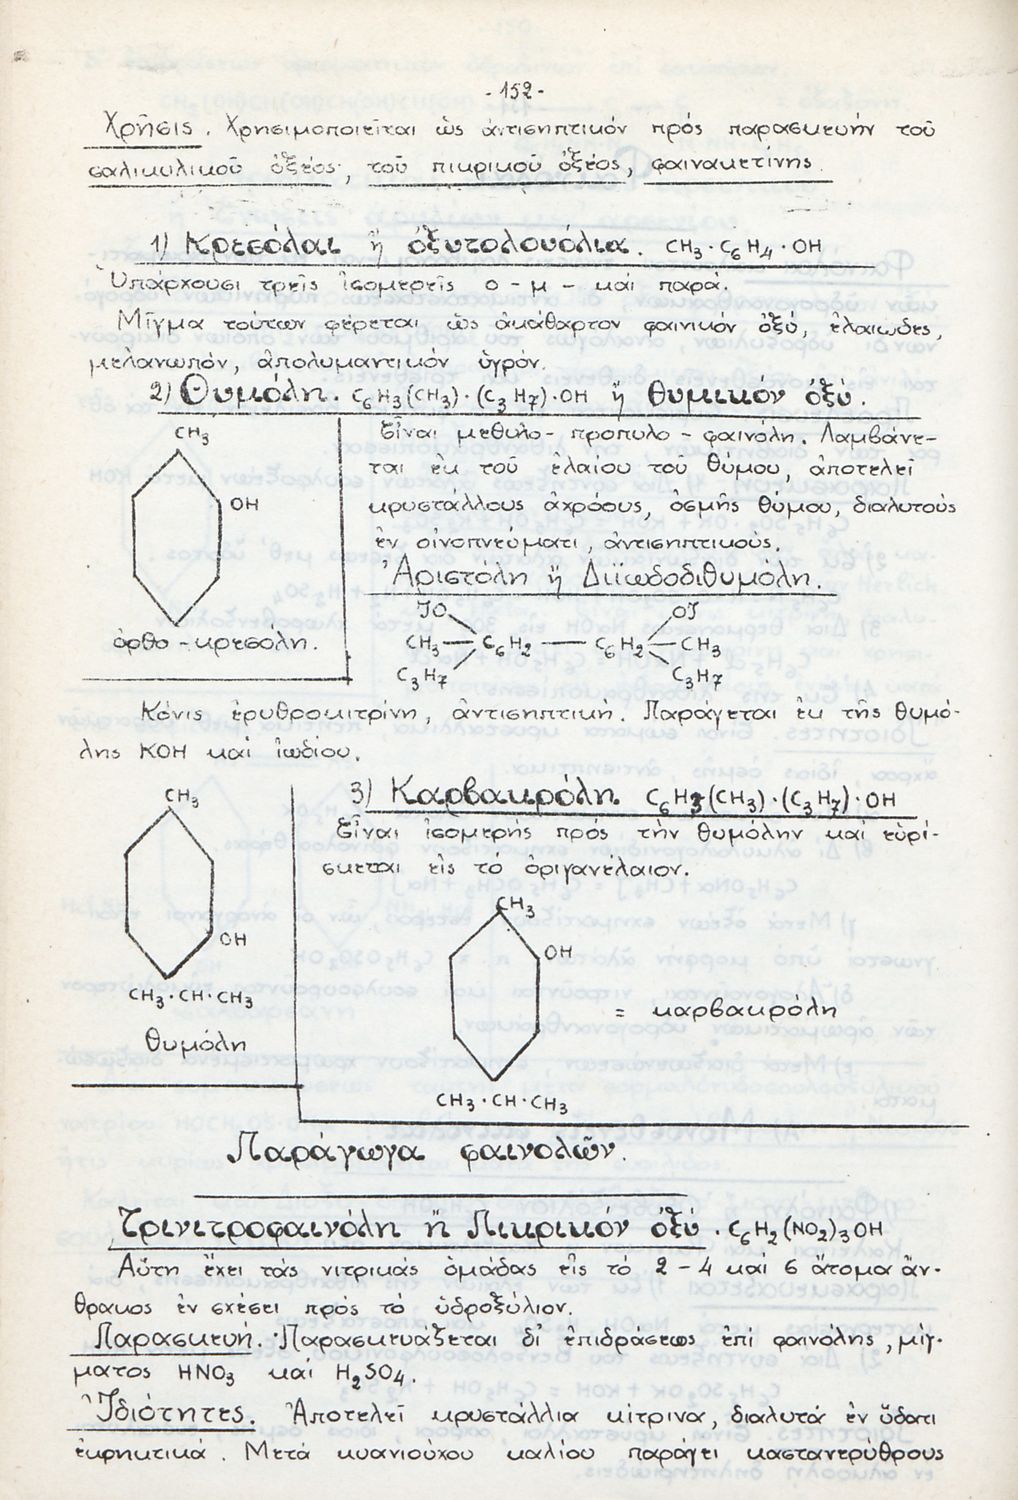 - 152 -
Χρῆσις. Χρησιμοποιεῖται ὡς ἀντισηπτικόν πρός παρασκευήν τοῦ
σαλικυλικοῦ ὀξέος, τοῦ πικρικοῦ ὀξέος, φαινακετίνης.
1) Κρεσόλαι ἤ ὀξυτολουόλια. CH3·C6H4·OH
Ὑπάρχουσι τρεῖς ἰσομερεῖς ο - μ - καί παρά.
Μῖγμα τούτων φέρεται ὡς ἀκάθαρτον φαινικόν ὀξύ, ἐλαιῶδες,
μελανωπόν, ἀπολυμαντικόν ὑγρόν.
2) Θυμόλη. C6H3(CH3)·(C3H7)·OH ἤ θυμικόν ὀξύ.
CH3
OH
ὀρθο - κρεσόλη.
Εἶναι μεθυλο - προπυλο - φαινόλη. Λαμβάνε-
ται ἐκ τοῦ ἐλαίου τοῦ θύμου, ἀποτελεῖ
κρυστάλλους ἀχρόους, ὀσμῆς θύμου, διαλυτούς
ἐν οἰνοπνεύματι, ἀντισηπτικούς.
Ἀριστόλη ἤ Διιωδοδιθυμόλη.
JO OJ
CH3 — C6H2 — C6H2 — CH3
C3H7 C3H7
Κόνις ἐρυθροκιτρίνη, ἀντισηπτική. Παράγεται ἐκ τῆς θυμό-
λης KOH καί ἰωδίου.
CH3
OH
CH3·CH·CH3
θυμόλη
3) Καρβακρόλη C6H3(CH3)·(C3H7)·OH
Εἶναι ἰσομερής πρός τήν θυμόλην καί εὑρί-
σκεται εἰς τό ὀριγανέλαιον.
CH3
OH
= καρβακρόλη
CH3·CH·CH3
Παράγωγα φαινολῶν.
Τρινιτροφαινόλη ἤ Πικρικόν ὀξύ. C6H2(NO2)3OH
Αὕτη ἔχει τάς νιτρικάς ὁμάδας εἰς τό 2 - 4 καί 6 ἄτομα ἄν-
θρακος ἐν σχέσει πρός τό ὑδροξύλιον.
Παρασκευή. Παρασκευάζεται δι' ἐπιδράσεως ἐπί φαινόλης, μίγ-
ματος HNO3 καί H2SO4.
Ἰδιότητες. Ἀποτελεῖ κρυστάλλια κίτρινα, διαλυτά ἐν ὕδατι
ἐκρηκτικά. Μετά κυανιούχου καλίου παράγει καστανερύθρους